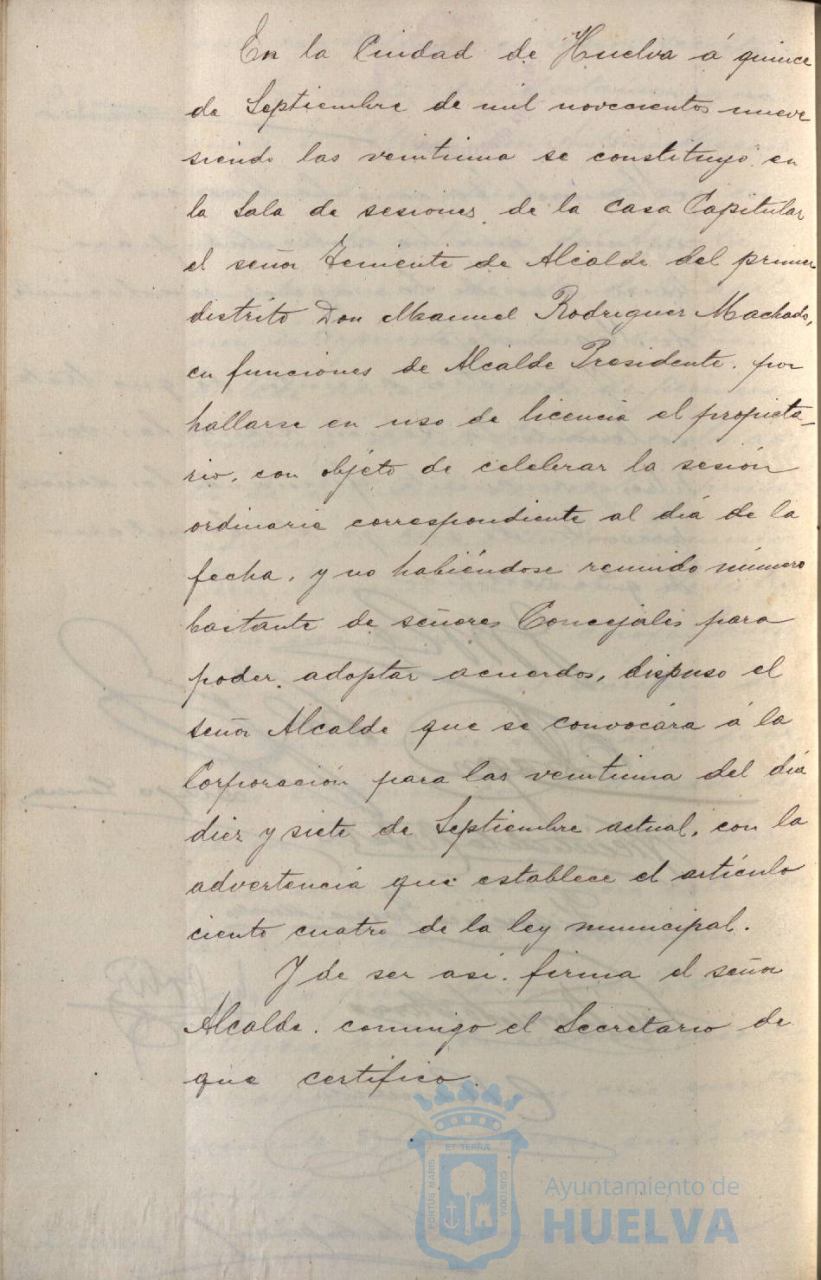 En la Ciudad de Huelva á quince
de Septiembre de mil novecientos nueve
siendo las veintiuna se constituyó en
la Sala de sesiones de la Casa Capitular
el señor Teniente de Alcalde del primer
distrito Don Manuel Rodriguez Machado,
en funciones de Alcalde Presidente. por
hallarse en uso de licencia el propieta-
rio, con objeto de celebrar la sesión
ordinaria correspondiente al dia de la
fecha, y no habiéndose reunido número
bastante de señores Concejales para
poder adoptar acuerdos, dispuso el
señor Alcalde que se convocára á la
Corporación para las veintiuna del dia
diez y siete de Septiembre actual, con la
advertencia que establece el artículo
ciento cuatro de la ley municipal.
Y de ser asi. firma el señor
Alcalde. conmigo el Secretario de
que certifico.
PORTUS MARIS ET TERRAE CUSTODIA
Ayuntamiento de
HUELVA